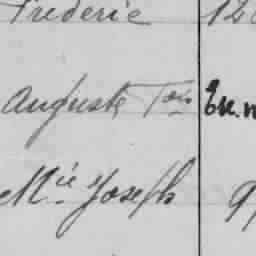 Frederic 12
Auguste Tous En.
Mie Joseph 9